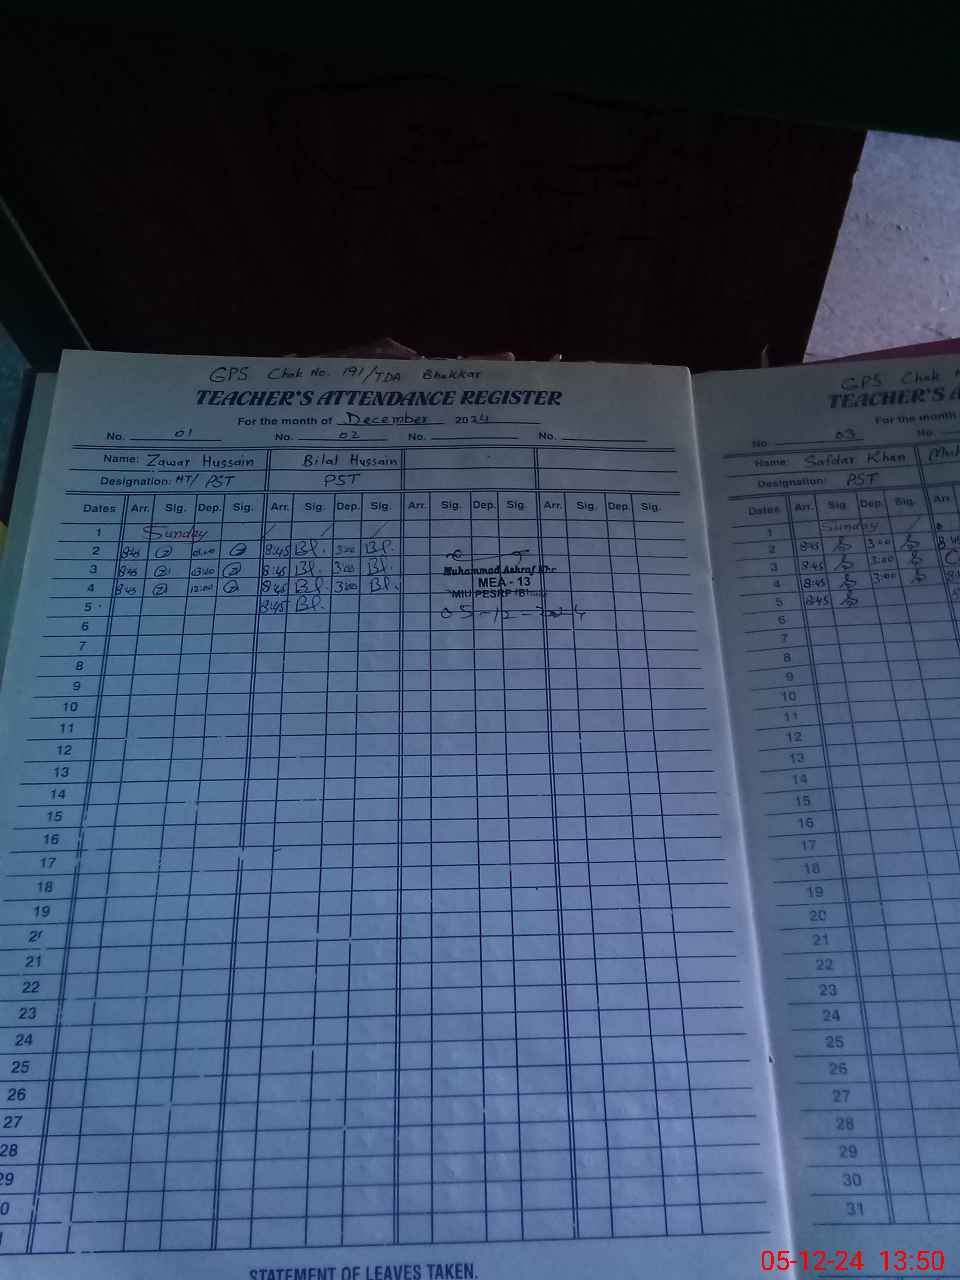 GPS Chak No. 191/TDA Bhakkar
TEACHER'S ATTENDANCE REGISTER
For the month of December 2024
No. 01 No. 02 No. No.
Name: Zawar Hussain Bilal Hussain
Designation: HT/ PST PST
Dates Arr. Sig. Dep. Sig. Arr. Sig. Dep. Sig. Arr. Sig. Dep. Sig. Arr. Sig. Dep. Sig.
1 Sunday
2 8:45 8:45 Bl. 3:00 Bl.
3 8:45 8:45 Bl. 3:00 Bl.
4 8:45 12:00 8:45 Bl. 3:00 Bl.
5 8:45 Bl.
6
7
8
9
10
11
12
13
14
15
16
17
18
19
21
22
23
24
25
26
27
28
29
Muhammad Ashraf
MEA - 13
MIU PESRP
05-12-2024
STATEMENT OF LEAVES TAKEN.
GPS Chak
TEACHER'S A
For the month
No. 03 No.
Name: Safdar Khan
Designation: PST
Dates Arr. Sig. Dep. Sig. Arr.
1 Sunday
2 8:45 3:00
3 8:45 3:00
4 8:45 3:00
5 8:45
6
7
8
9
10
11
12
13
14
15
16
17
18
19
20
21
22
23
24
25
26
27
28
29
30
31
05-12-24 13:50